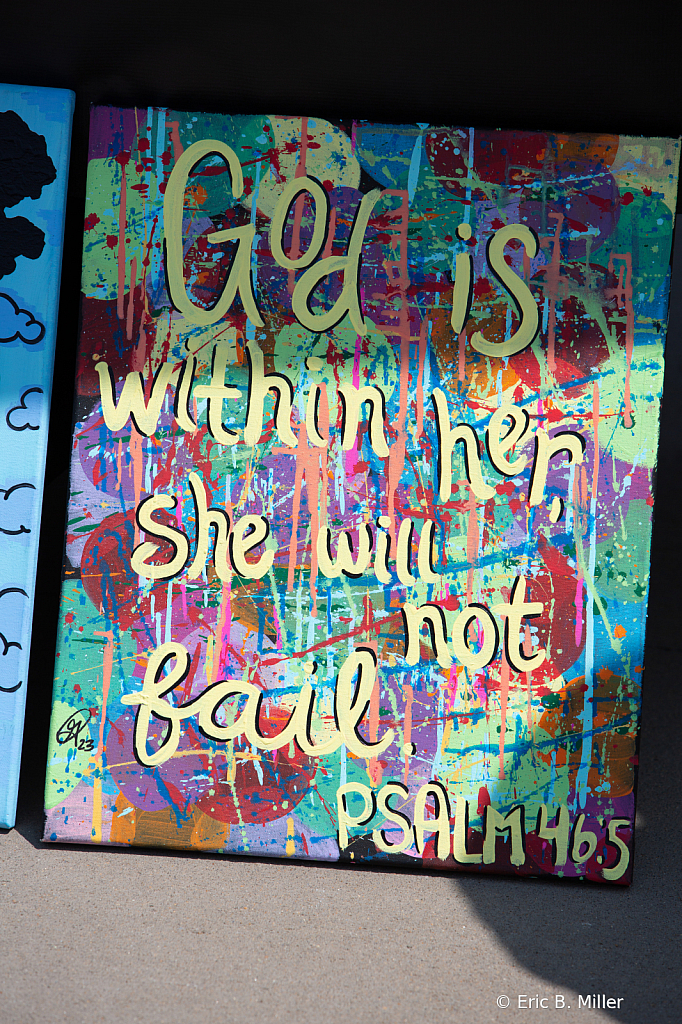 God is
within her,
she will
not
fail.
23
PSALM 46:5
© Eric B. Miller